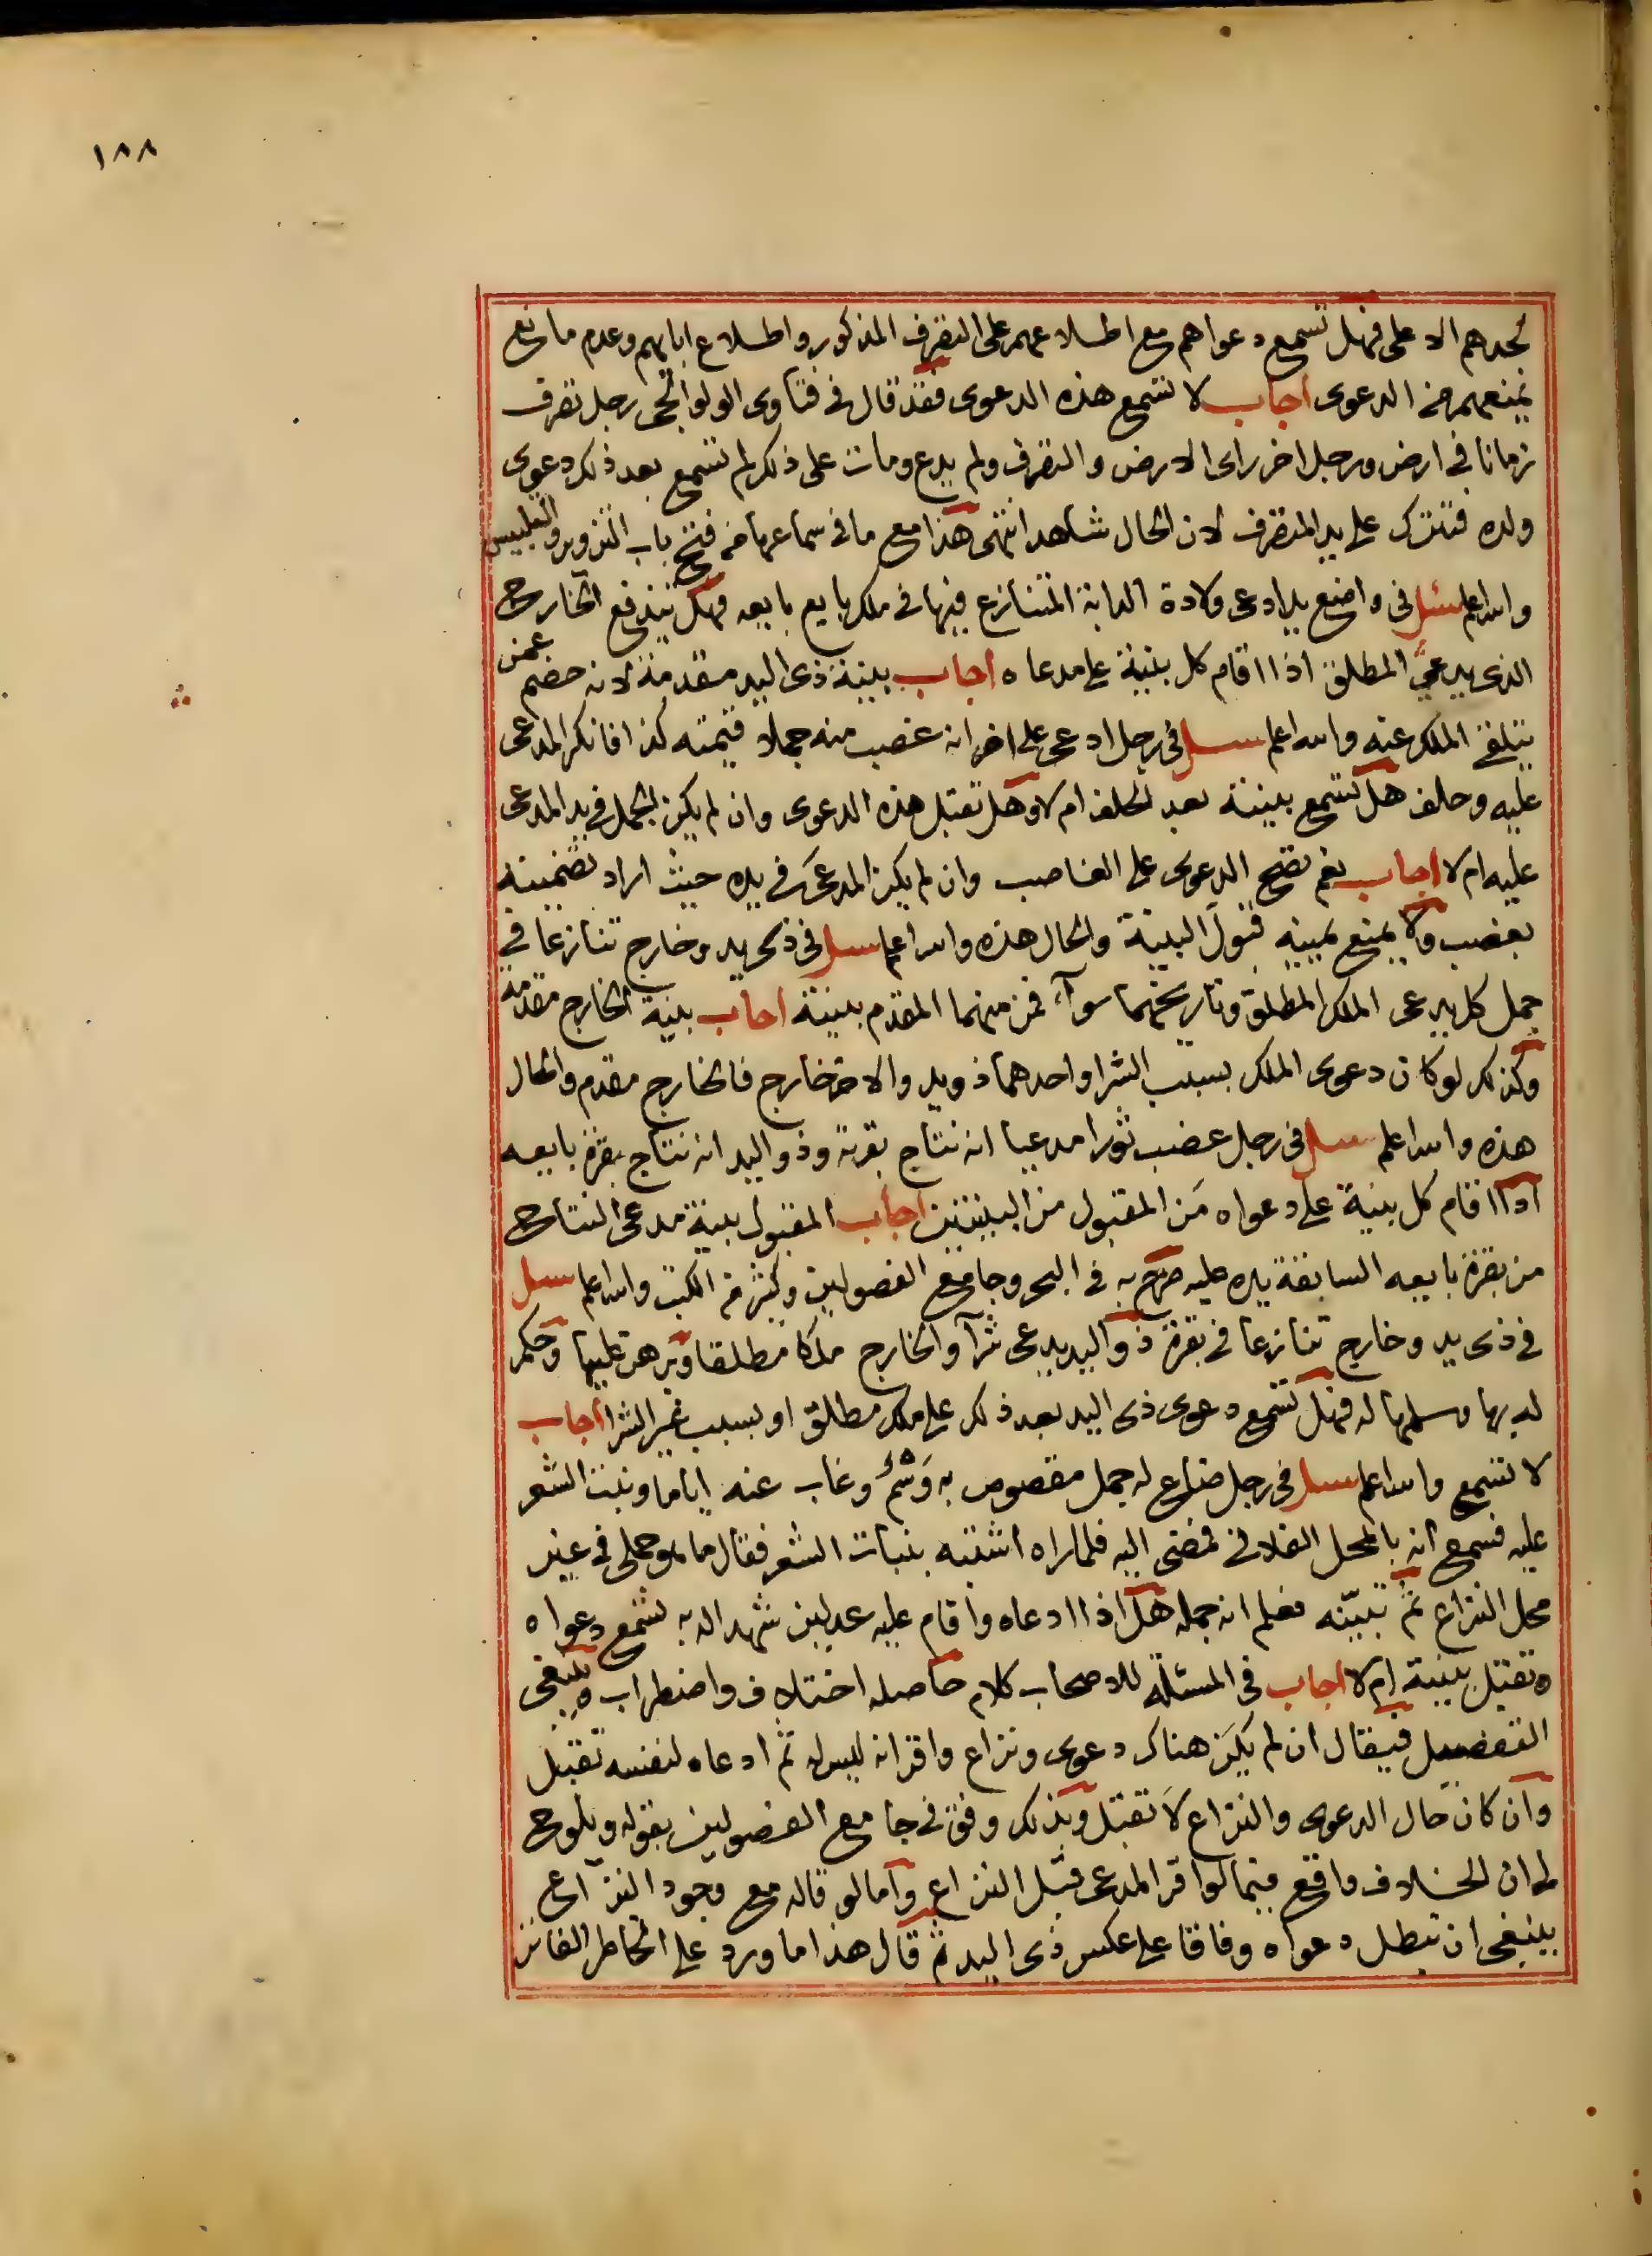 ١٨٨
لجدهم الاعلى فهل تسمع دعواهم مع اطلاعهم على التصرف المذكور واطلاع ابايهم وعدم مانع
يمنعهم من الدعوى اجاب لا تسمع هذه الدعوى فقد قال في فتاوى الولوالجى رجل تصرف
زمانا في ارض ورجل اخر راى الارض والتصرف ولم يدع ومات على ذلك لم تسمع بعد ذلك دعوى
ولده فتترك على يد المتصرف لان الحال شاهد انتهى هذا مع ما في سماعها من فتح باب التزوير والتلبيس
والله اعلم سئل في واضع يد ادعى ولادة الدابة المتنازع فيها في ملك بايع بايعه فهل يندفع الخارج
الذى يدعى المطلق اذا اقام كل بينة على مدعاه اجاب بينة ذى اليد مقدمة لانه خصم عمن
يتلقى الملك عنه والله اعلم سئل في رجل ادعى على اخر انه غصب منه جملا قيمته كذا فانكر المدعى
عليه وحلف هل تسمع بينته بعد الحلف ام لا وهل تقبل هذه الدعوى وان لم يكن الجمل في يد المدعى
عليه ام لا اجاب نعم تصح الدعوى على الغاصب وان لم يكن المدعى في يده حيث اراد تضمينه
بغصب ولا يمنع يمينه قبول البينة والحال هذه والله اعلم سئل في ذى يد وخارج تنازعا في
جمل كل يدعى الملك المطلق وتاريخهما سواء فمن منهما المقدم بينة اجاب بينة الخارج مقدمة
وكذلك لو كان دعوى الملك بسبب الشرا واحدهما ذو يد والاخر خارج فالخارج مقدم والحال
هذه والله اعلم سئل في رجل غصب ثورا مدعيا انه نتاج بقرته وذو اليد انه نتاج بقرة بايعه
اذا اقام كل بينة على دعواه مَن المقبول من البينتين اجاب المقبول بينة مدعى النتاج
من بقرة بايعه السابقة يده عليه صرح به في البحر وجامع الفصولين وكثير من الكتب والله اعلم سئل
في ذى يد وخارج تنازعا في بقرة ذو اليد يدعى شرآ والخارج ملكا مطلقا وبرهن عليها وحكم
له بها وسلمها له فهل تسمع دعوى ذى اليد بعد ذلك على ملك مطلق او بسبب غير الشرا اجاب
لا تسمع والله اعلم سئل في رجل ضاع له جمل مقصوص به وَشْمٌ وغاب عنه اياما ونبت الشعر
عليه فسمع انه بالمحل الفلاني فمضى اليه فلما راه اشتبه بنبات الشعر فقال ما هو جملى في غير
محل النزاع ثم تبيّنه فعلم انه جمله هل اذا ادعاه واقام عليه عدلين شهدا له به تسمع دعواه
وتقبل بينته ام لا اجاب في المسئلة للاصحاب كلام حاصله اختلاف واضطراب وينبغى
التفصيل فيقال ان لم يكن هناك دعوى ونزاع واقر انه ليس له ثم ادعاه لنفسه تقبل
وان كان حال الدعوى والنزاع لا تقبل وبذلك وفق في جامع الفصولين بقوله ويلوح
لى ان الخلاف واقع فيما لو اقر المدعى قبل النزاع واما لو قاله مع وجود النزاع
ينبغى ان تبطل دعواه وفاقا على عكس ذى اليد ثم قال هذا ما ورد على الخاطر الفاتر